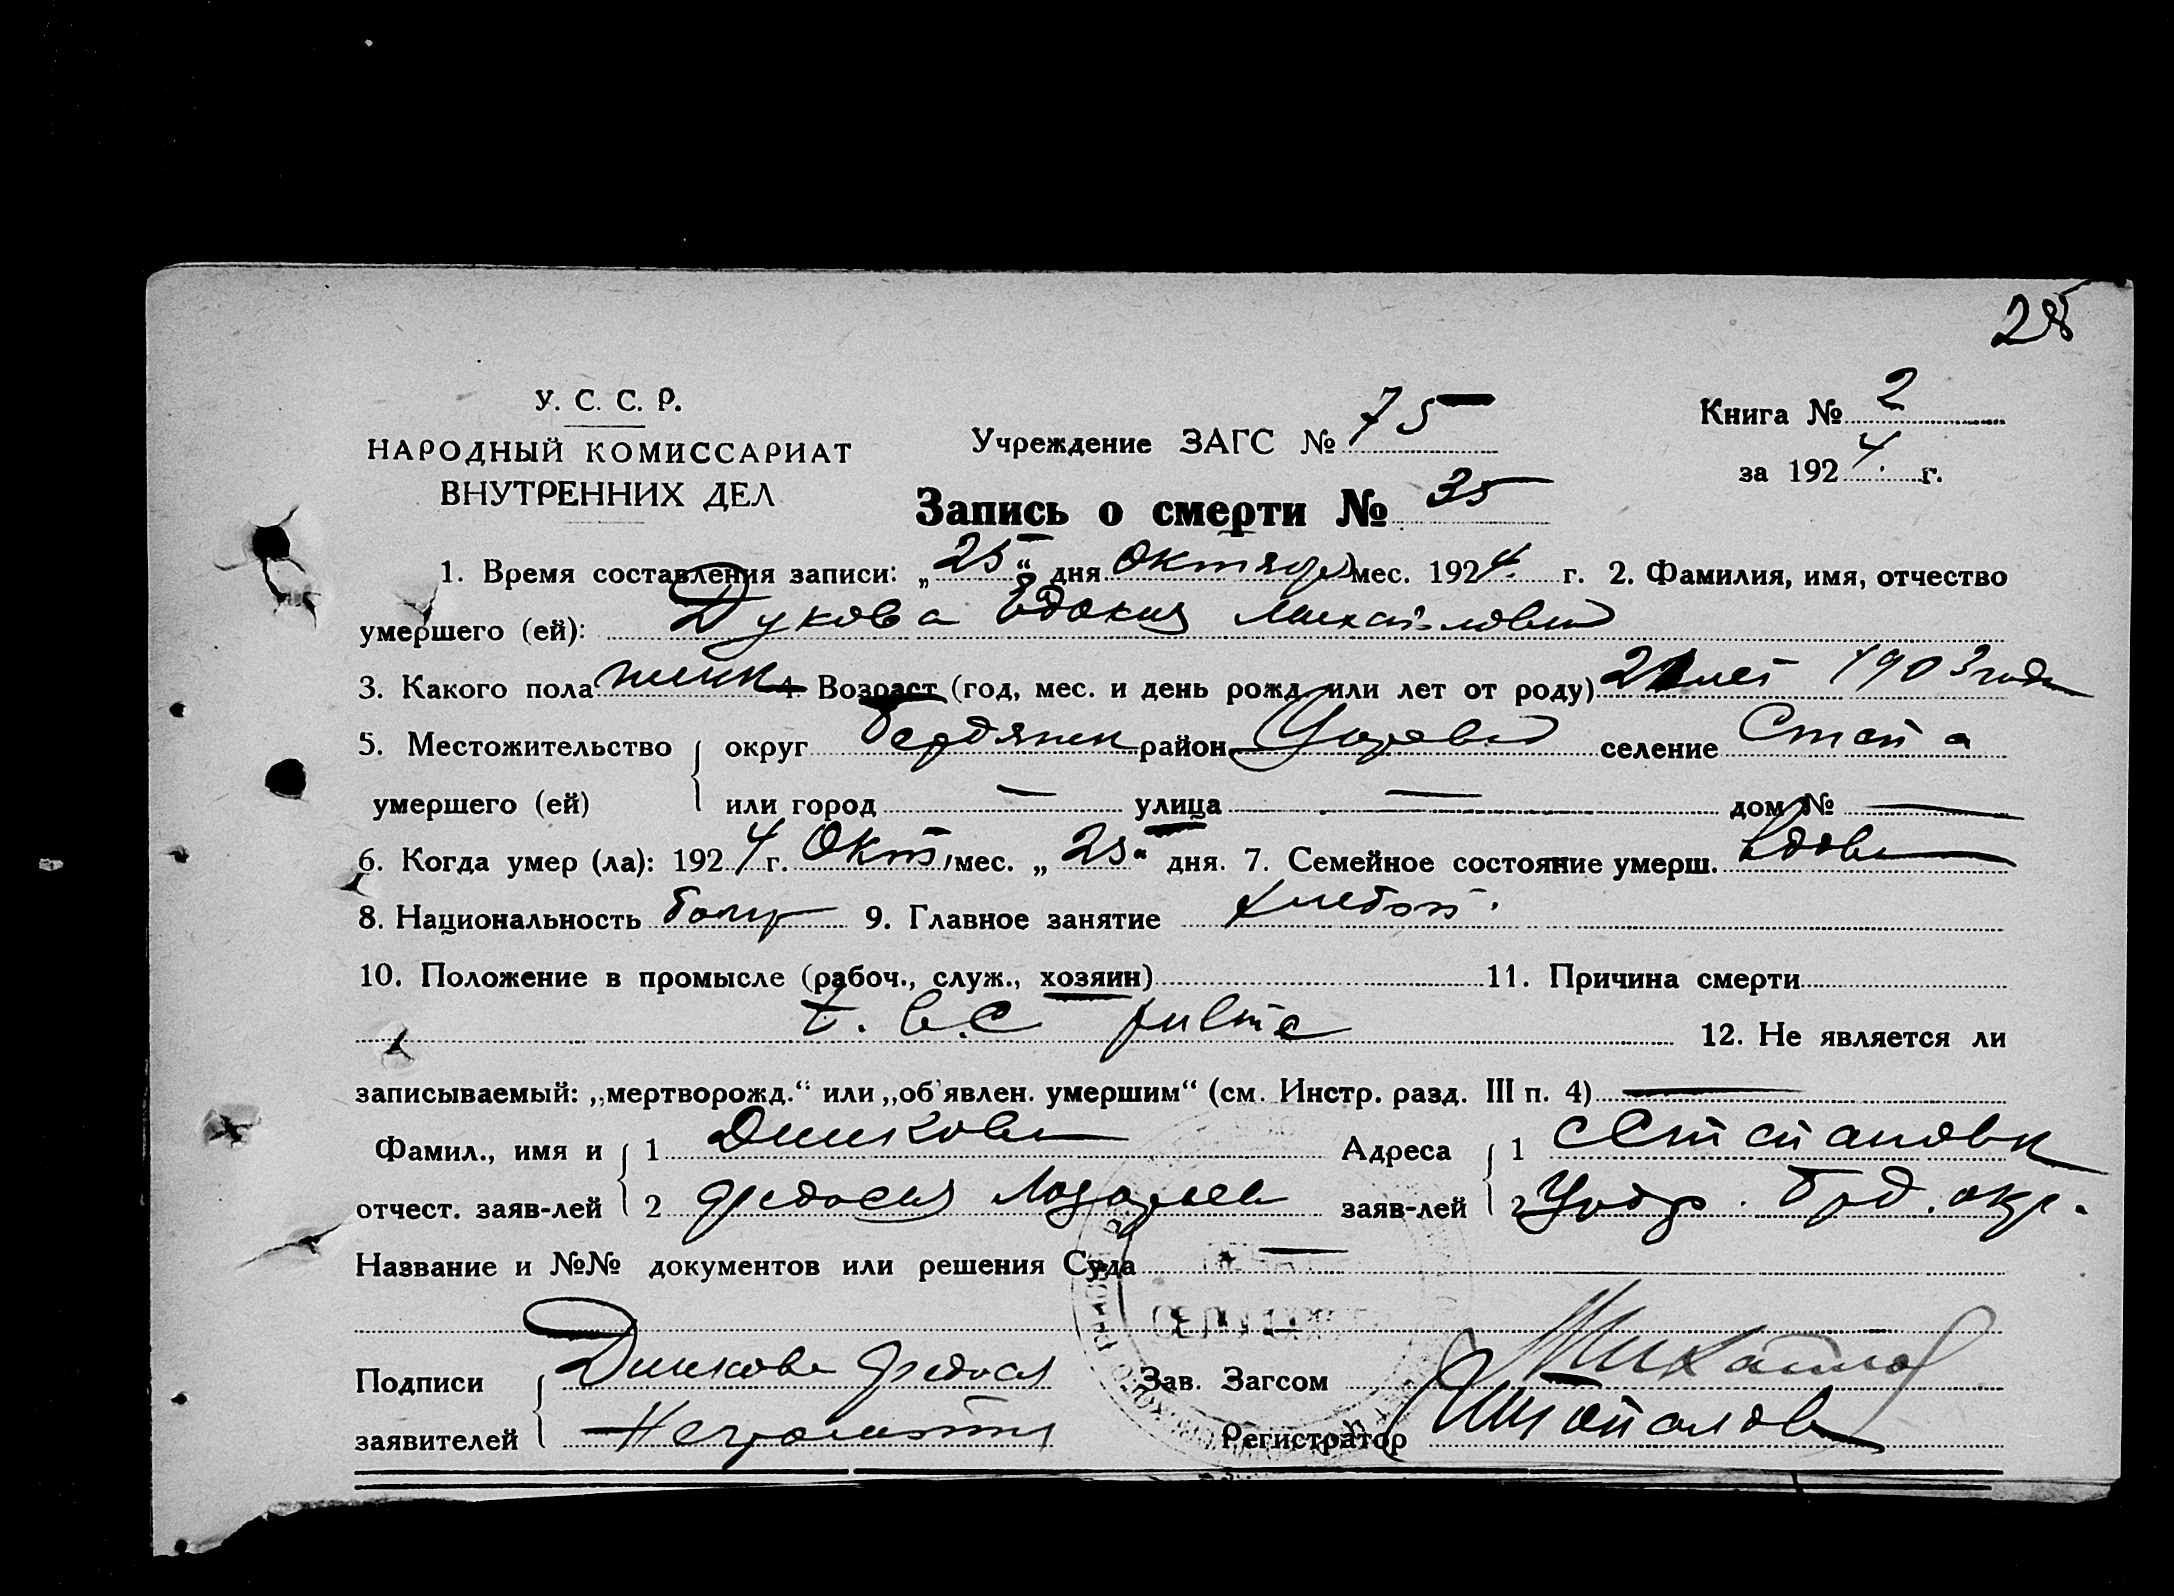 28
У. С. С. Р.
НАРОДНЫЙ КОМИССАРИАТ
ВНУТРЕННИХ ДЕЛ
Учреждение ЗАГС № 75
Книга № 2
за 1924 г.
Запись о смерти № 35
1. Время составления записи: „25“ дня Октября мес. 1924 г. 2. Фамилия, имя, отчество
умершего (ей): Дукова Евдокия Михайловна
3. Какого пола женск 4. Возраст (год, мес. и день рожд. или лет от роду) 21 лет 1903 года
5. Местожительство { округ Бердянск район селение
умершего (ей) или город — улица — дом № —
6. Когда умер (ла): 1924 г. Окт. мес. „25“ дня. 7. Семейное состояние умерш. Вдова
8. Национальность болг 9. Главное занятие хлебоп.
10. Положение в промысле (рабоч., служ., хозяин) 11. Причина смерти
t. b. c 12. Не является ли
записываемый: „мертворожд.“ или „об'явлен. умершим“ (см. Инстр. разд. III п. 4) —
Фамил., имя и { 1 Динкова Адреса { 1
отчест. заяв-лей 2 Федосия заяв-лей 2 окр.
Название и №№ документов или решения Суда —
Подписи { Динкова Федося Зав. Загсом Михайлов
заявителей Неграмотна Регистратор